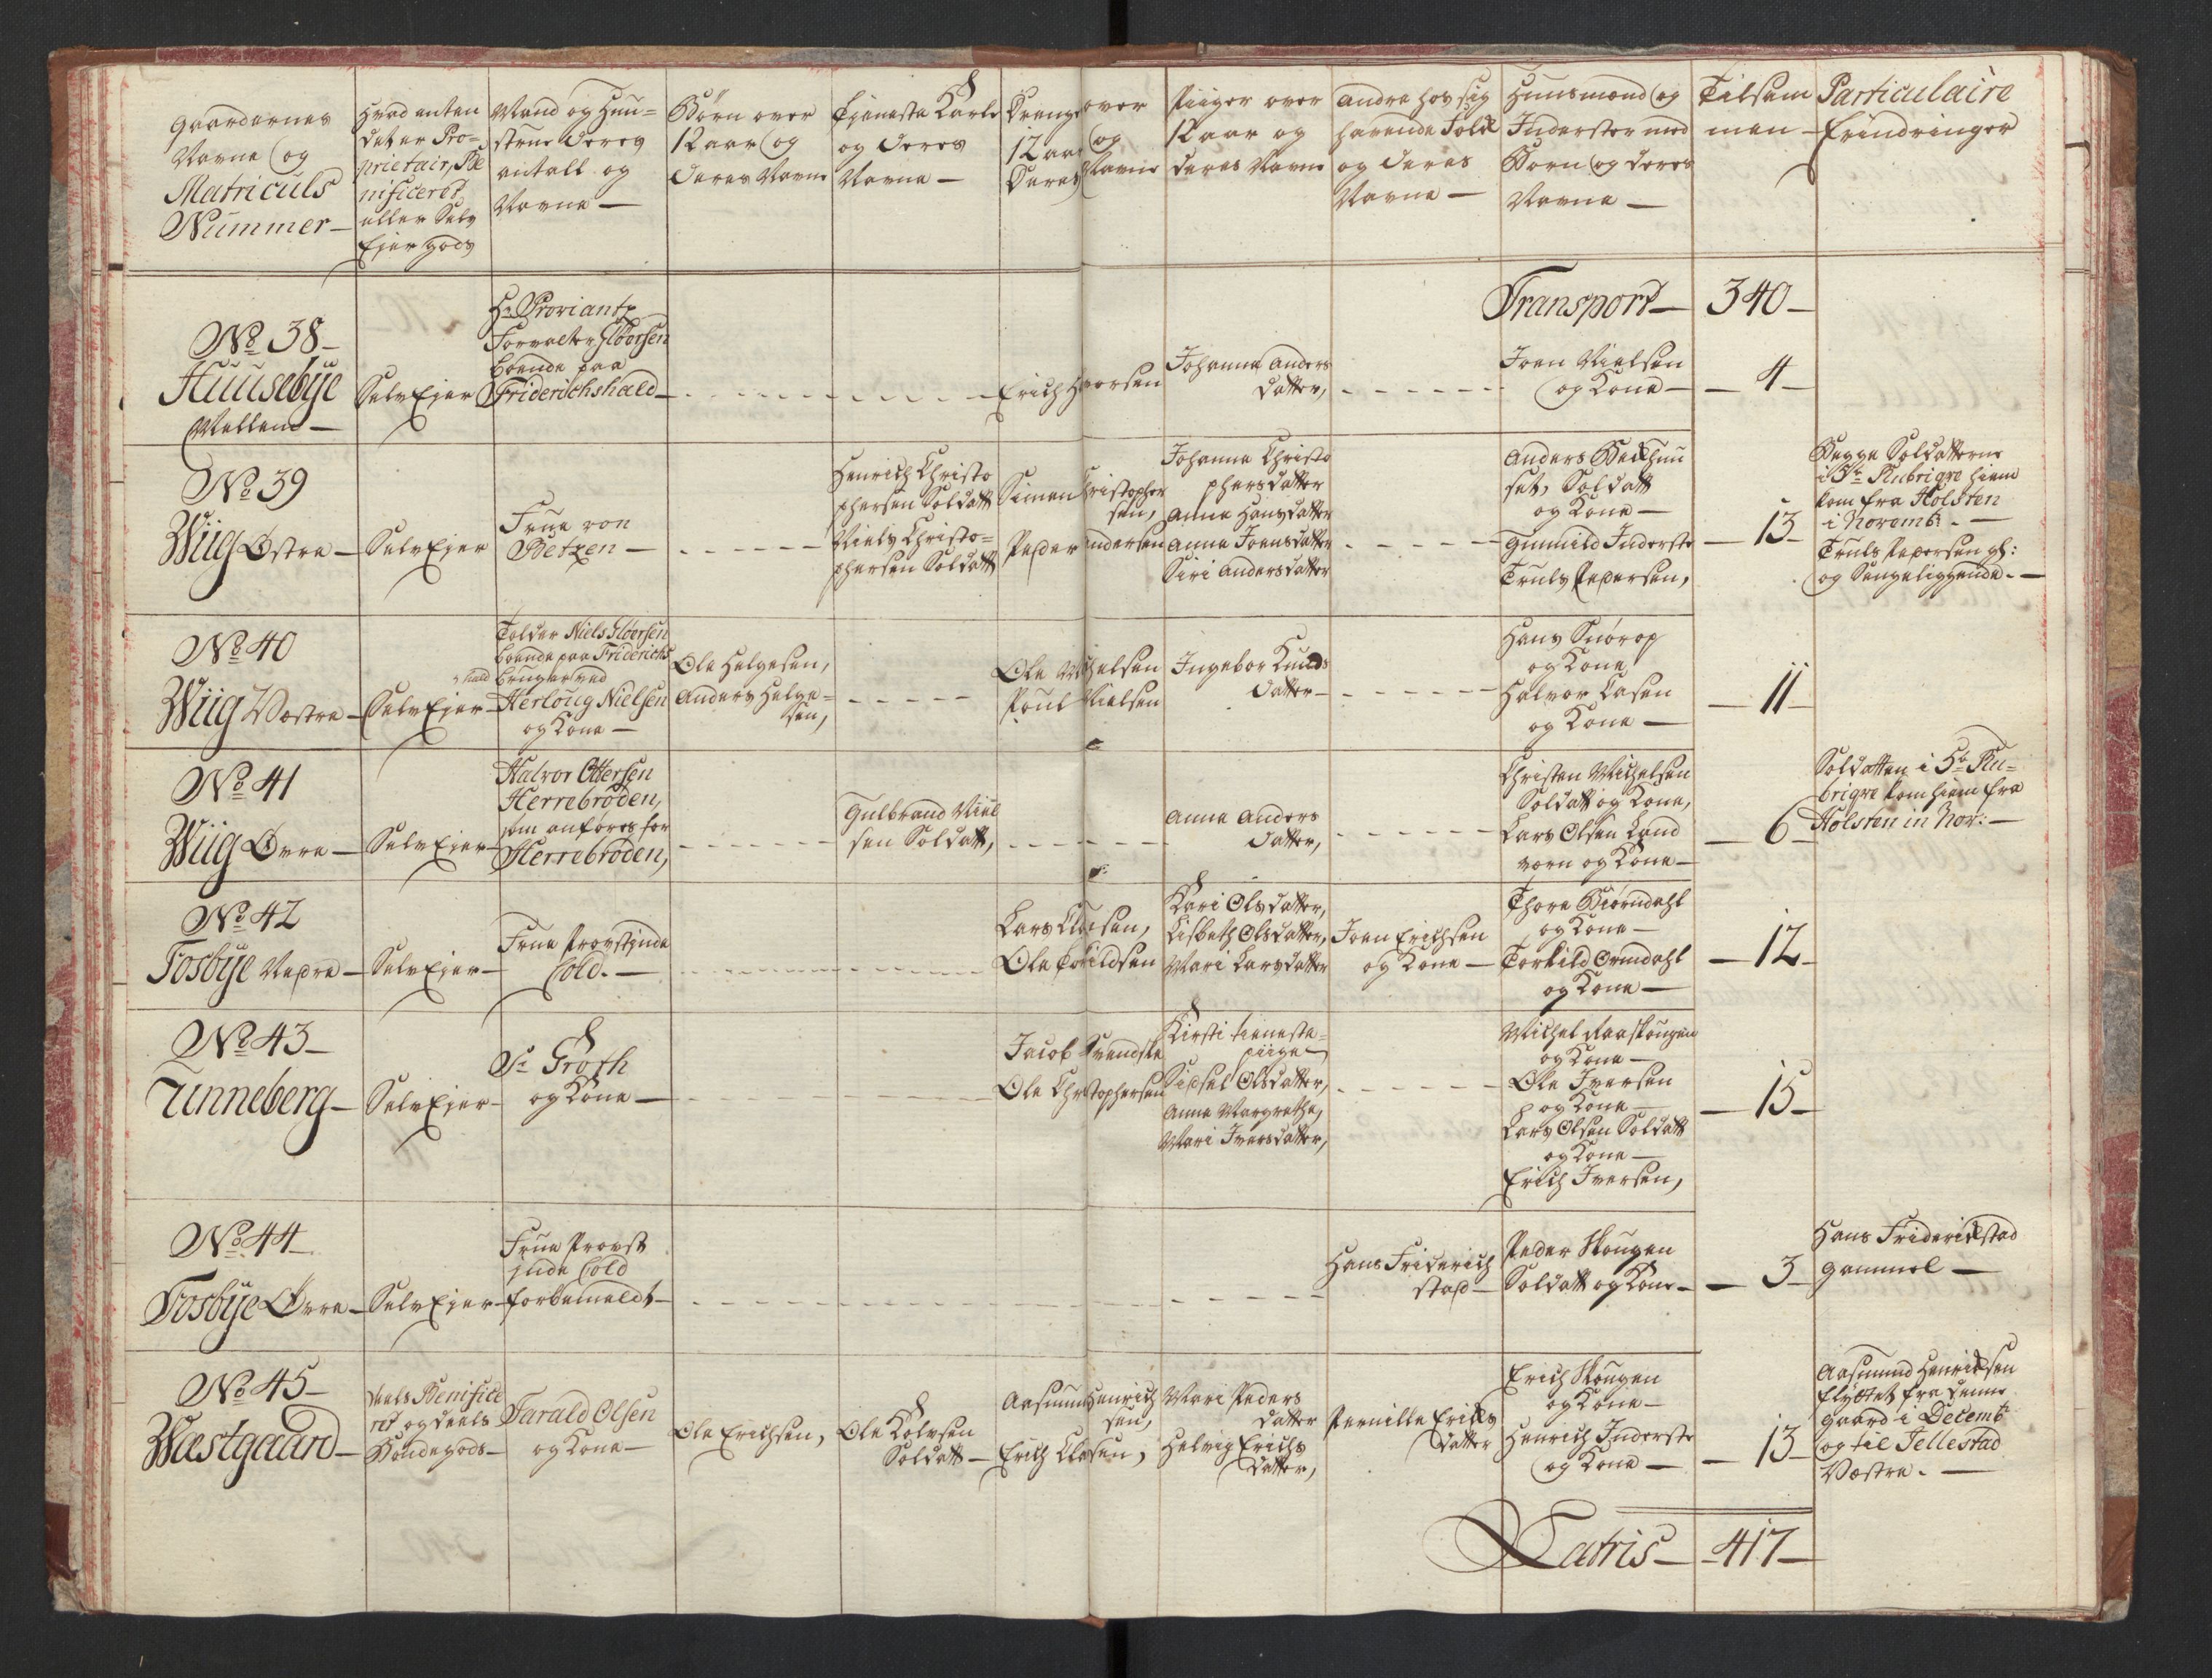 Gaardernes
Navne og
Matriculs
Nummer
Hvad enten
det er Pro-
prietair, Be
nificeret
eller Selv
Ejer gods
Mand og Huu-
struer deres
antall og
Navne
Børn over
12 aar og
deres Navne
Tjeneste Karle
og deres
Navne
Drenge over
12 aar og
deres Navne
Piiger over
12 aar og
deres Navne
Andre hos sig
havende Folk
og deres
Navne
Huusmænd og
Inderster med
Børn og deres
Navne
Tilsam
men
Particulaire
Erindringer
Transport 340
No 38
Huusebye
Mellem
Selv Ejer
Hr Proviantz
Forvalter Gløersen
boende paa
Friderichshald
Erich Hvorsen
Johanna Anders
datter,
Joen Nielsen
og Kone
4
No 39
Wiig Østre
Selv Ejer
Frue von
Betzen
Henrich Christo
phersen Soldatt
Niels Christo-
phersen Soldatt
Simen Christopher
sen,
Peder Andersen
Johanna Christo
phersdatter
Anna Hansdatter
Anna Joensdatter
Siri Andersdatter
Anders Beckhuu
set, Soldatt
og Kone
Gunnild Inderste
Truls Pedersen,
13
Begge Soldatterne
i 5te Rubrigve hiem
kom fra Holsten
i Novembr.
Truls Pedersen gl:
og Sengeliggende.
No 40
Wiig Væstre
Selv Ejer
Tolder Niels Gløersen
boende paa Friderichs
hald bruger ved
Herloug Nielsen
og Kone
Ole Helgesen,
Anders Helge-
sen,
Ole Michelsen
Poul Nielsen
Ingebor Knuds
datter
Hans Snørop
og Kone
Halvor Lasen
og Kone
11
No 41
Wiig Øvre
Selv Ejer
Halvor Ottersen
Herrebrøden,
som anføres for
Herrebrøden,
Gulbrand Niel
sen Soldatt,
Anna Anders
datter,
Christen Michelsen
Soldatt og Kone,
Lars Olsen Land
værn og Kone
6
Soldatten i 5te Ru-
brigve kom hiem fra
Holsten in Nov:
No 42
Tosbye Nedre
Selv Ejer
Frue Provstjnde
Cold.
Lars Clasen,
Ole Torkildsen
Kari Olsdatter,
Lisbeth Olsdatter,
Mari Larsdatter
Joen Erichsen
og Kone
Thore Biørndahl
og Kone
Torkild Ormdahl
og Kone
12
No 43
Tunneberg
Selv Ejer
Sr Groth
og Kone
Jacob Svendske
Ole Christophersen
Kirsti tieneste-
piige
Sidsel Olsdatter,
Anna Margrethe,
Mari Iversdatter,
Michel Raaskougen
og Kone
Ole Iversen
og Kone
Lars Olsen Soldatt
og Kone
Erich Iversen,
15
No 44
Tosbye Øvre
Selv Ejer
Frue Provst
jnde Cold
forbemeldt
Hans Friderich
stad
Peder Skougen
Soldatt og Kone
3
Hans Friderickstad
gammel
No 45
Wæstgaard
deels Benificè
ret og deels
Bondegods
Harald Olsen
og Kone
Ole Erichsen,
Ole Kolvsen
Soldatt
Aasmund Henrich
sen,
Erich Clasen,
Mari Peders
datter
Helvig Erichs
datter,
Pernille Erichs
datter
Erich Skougen
og Kone
Henrich Inderste
og Kone
13
Aasmund Henricksen
flyttet fra denne
gaard i Decembr
og til Tellestad
Væstre.
Latris 417